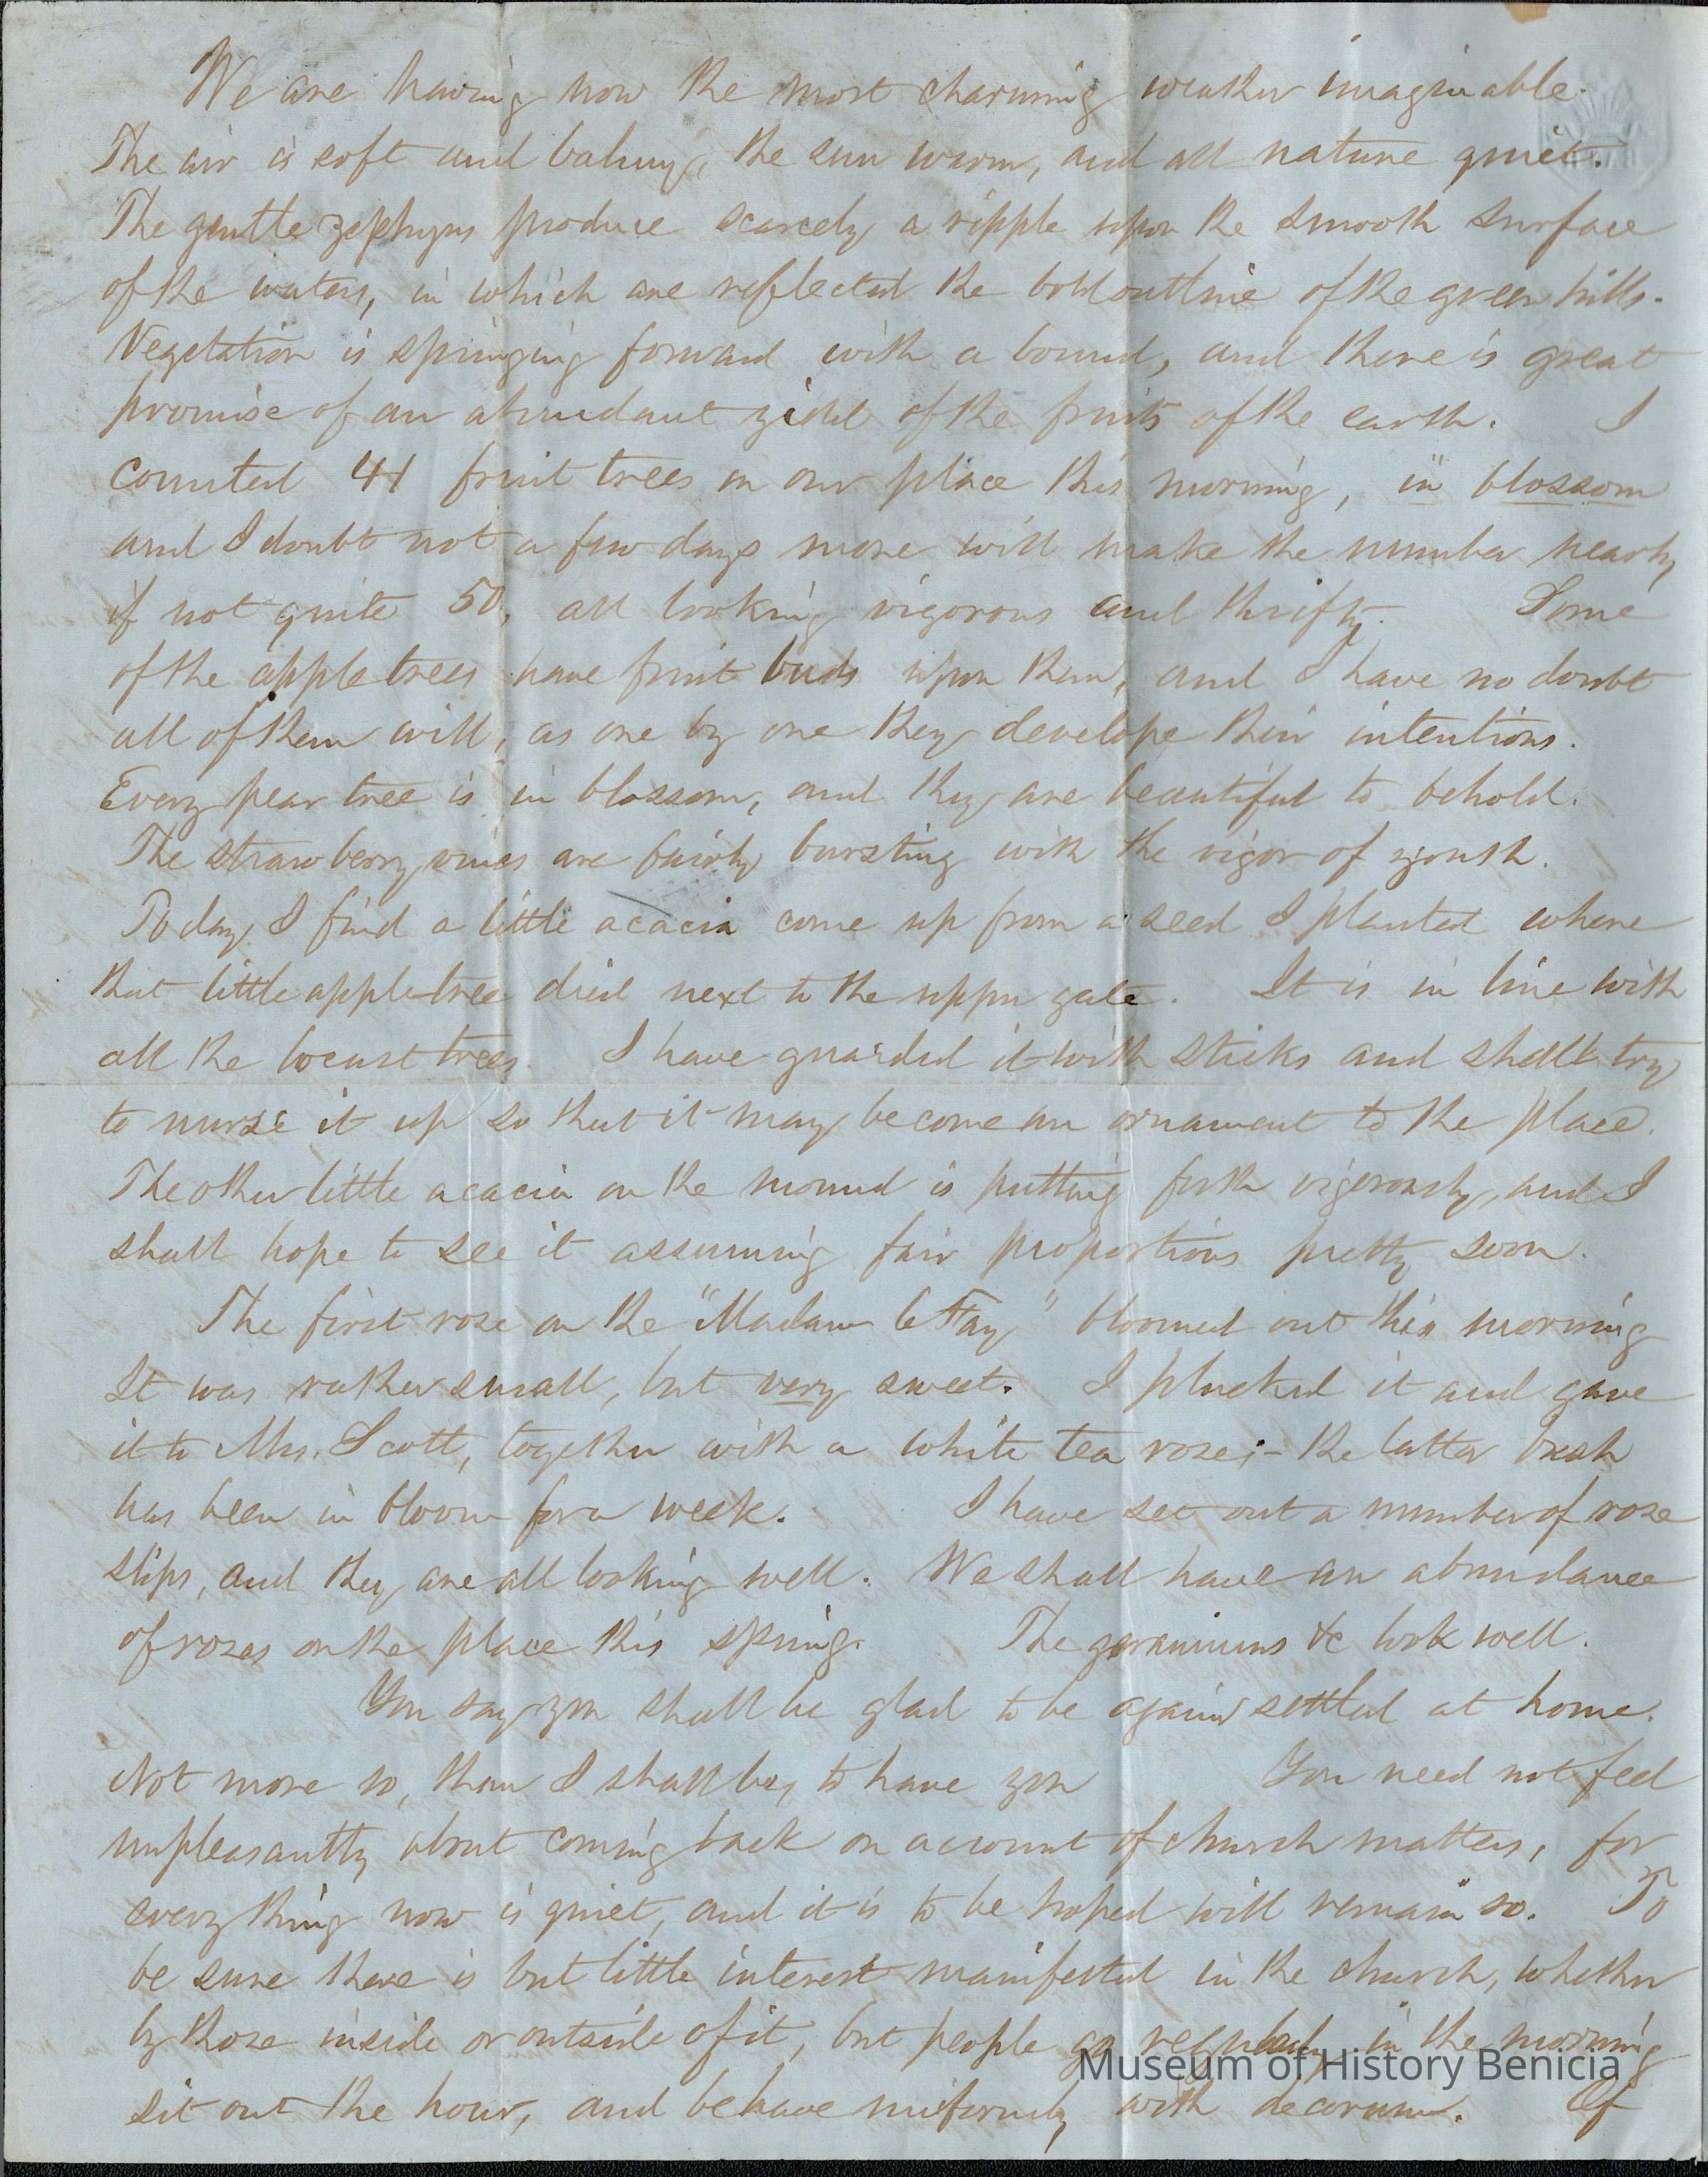 We are having now the most charming weather imaginable.
The air is soft and balmy, the sun warm, and all nature quiet.
The gentle zephyrs produce scarcely a ripple upon the smooth surface
of the waters, in which are reflected the bold outline of the green hills.
Vegetation is springing forward with a bound, and there is great
promise of an abundant yield of the fruits of the earth. I
counted 41 fruit trees on our place this morning, in blossom
and I doubt not a few days more will make the number nearly
if not quite 50, all looking vigorous and thrifty. Some
of the apple trees have fruit buds upon them, and I have no doubt
all of them will, as one by one they develope their intentions.
Every pear tree is in blossom, and they are beautiful to behold.
The strawberry vines are fairly bursting with the vigor of youth.
Today I find a little acacia come up from a seed I planted where
that little apple tree died next to the upper gate. It is in line with
all the locust trees. I have guarded it with sticks and shall try
to nurse it up so that it may become an ornament to the place.
The other little acacia on the mound is putting forth vigorously, and I
shall hope to see it assuming fair proportions pretty soon.
The first rose on the "Madam le Fay" bloomed out this morning
It was rather small, but very sweet. I plucked it and gave
it to Mrs. Scott, together with a white tea rose;- the latter bush
has been in bloom for a week. I have set out a number of rose
slips, and they are all looking well. We shall have an abundance
of roses on the place this spring. The geraniums &c look well.
You say you shall be glad to be again settled at home.
Not more so, than I shall be, to have you You need not feel
unpleasantly about coming back on account of church matters, for
everything now is quiet, and it is to be hoped will remain so. To
be sure there is but little interest manifested in the church, whether
by those inside or outside of it, but people go regularly in the morning
sit out the hour, and behave uniformly with decorum. Of
Museum of History Benicia